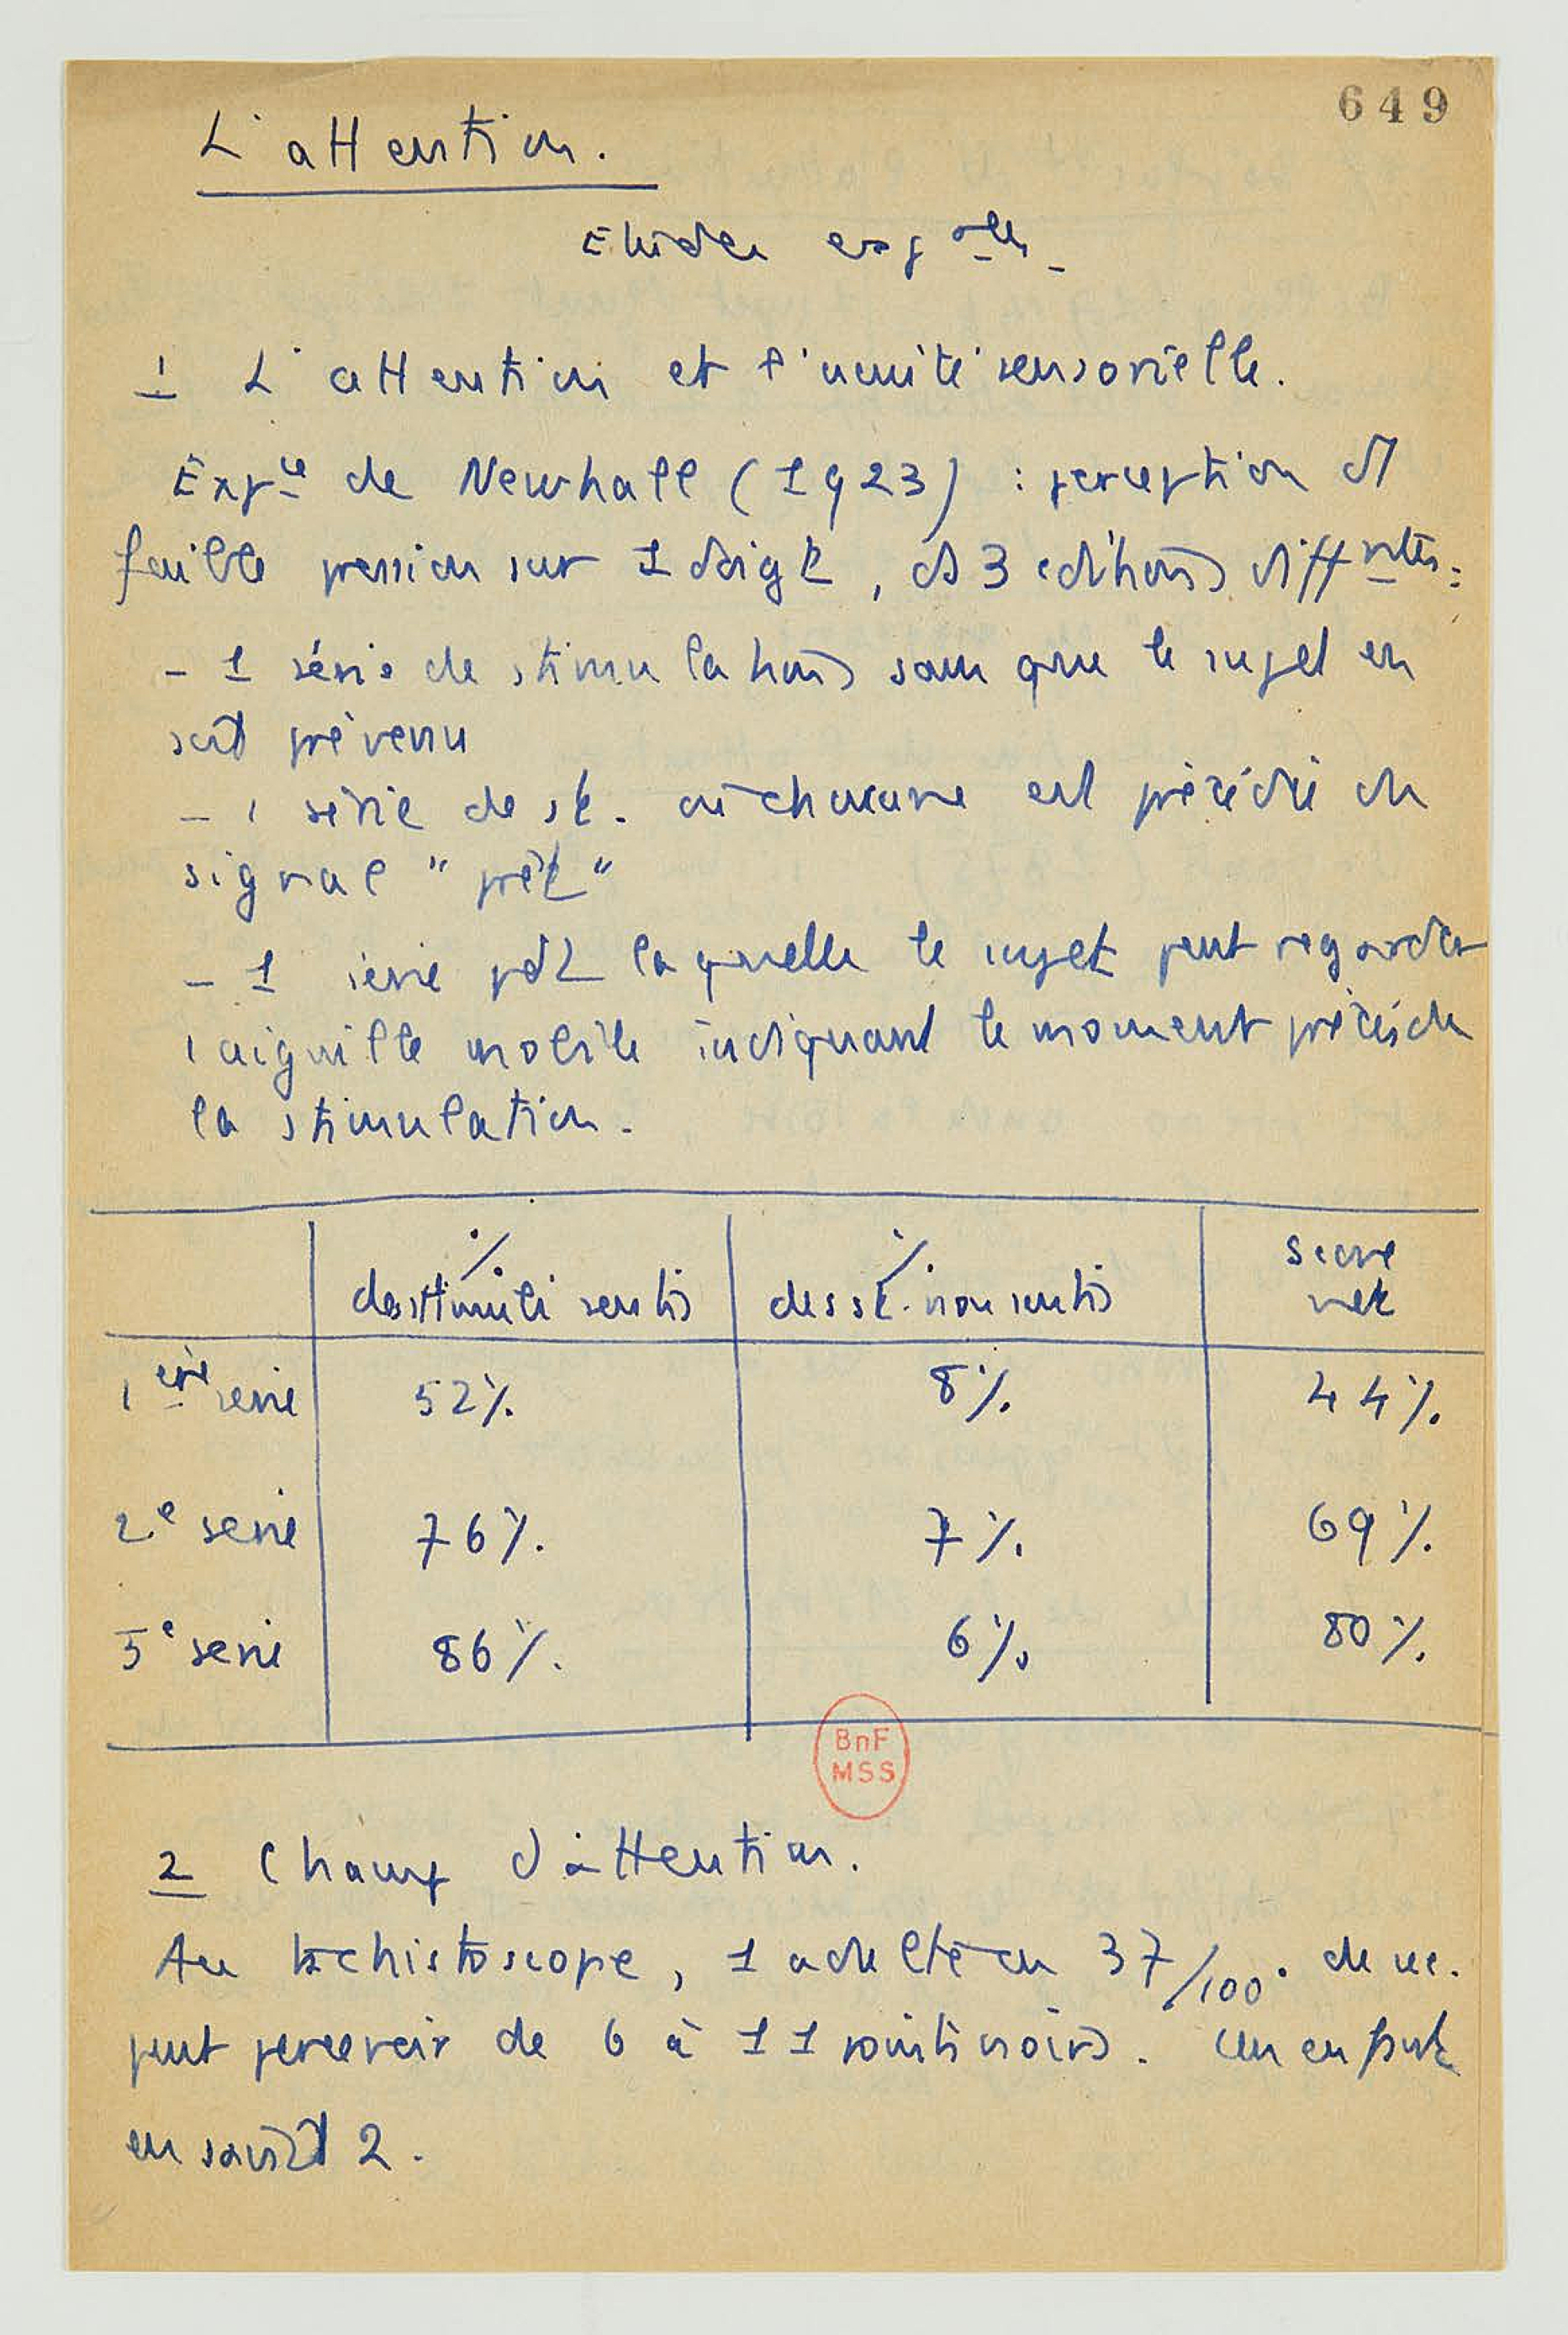 649
L'attention.
Etudes exp<sup>ales</sup>
1 L'attention et l'acuité sensorielle.
Exp<sup>ce</sup> de Newhall (1923) : perception d'1
faible pression sur 1 doigt, ds 3 cditions diff<sup>ntes</sup> :
- 1 série de stimulations sans que le sujet en
soit prévenu
- 1 série de st. où chacune est précédée du
signal "prêt"
- 1 série pdt laquelle le sujet peut regarder
1 aiguille mobile indiquant le moment précis de
la stimulation.
% des stimuli sentis | % des st. non sentis | score net
1<sup>ère</sup> serie | 52% | 8% | 44%
2<sup>e</sup> serie | 76% | 7% | 69%
3<sup>e</sup> serie | 86% | 6% | 80%
BnF
MSS
2 Champ d'attention.
Au tachistoscope, 1 adulte en 37/100° de sec.
peut percevoir de 6 à 11 points noirs. Un enfant
en saisit 2.